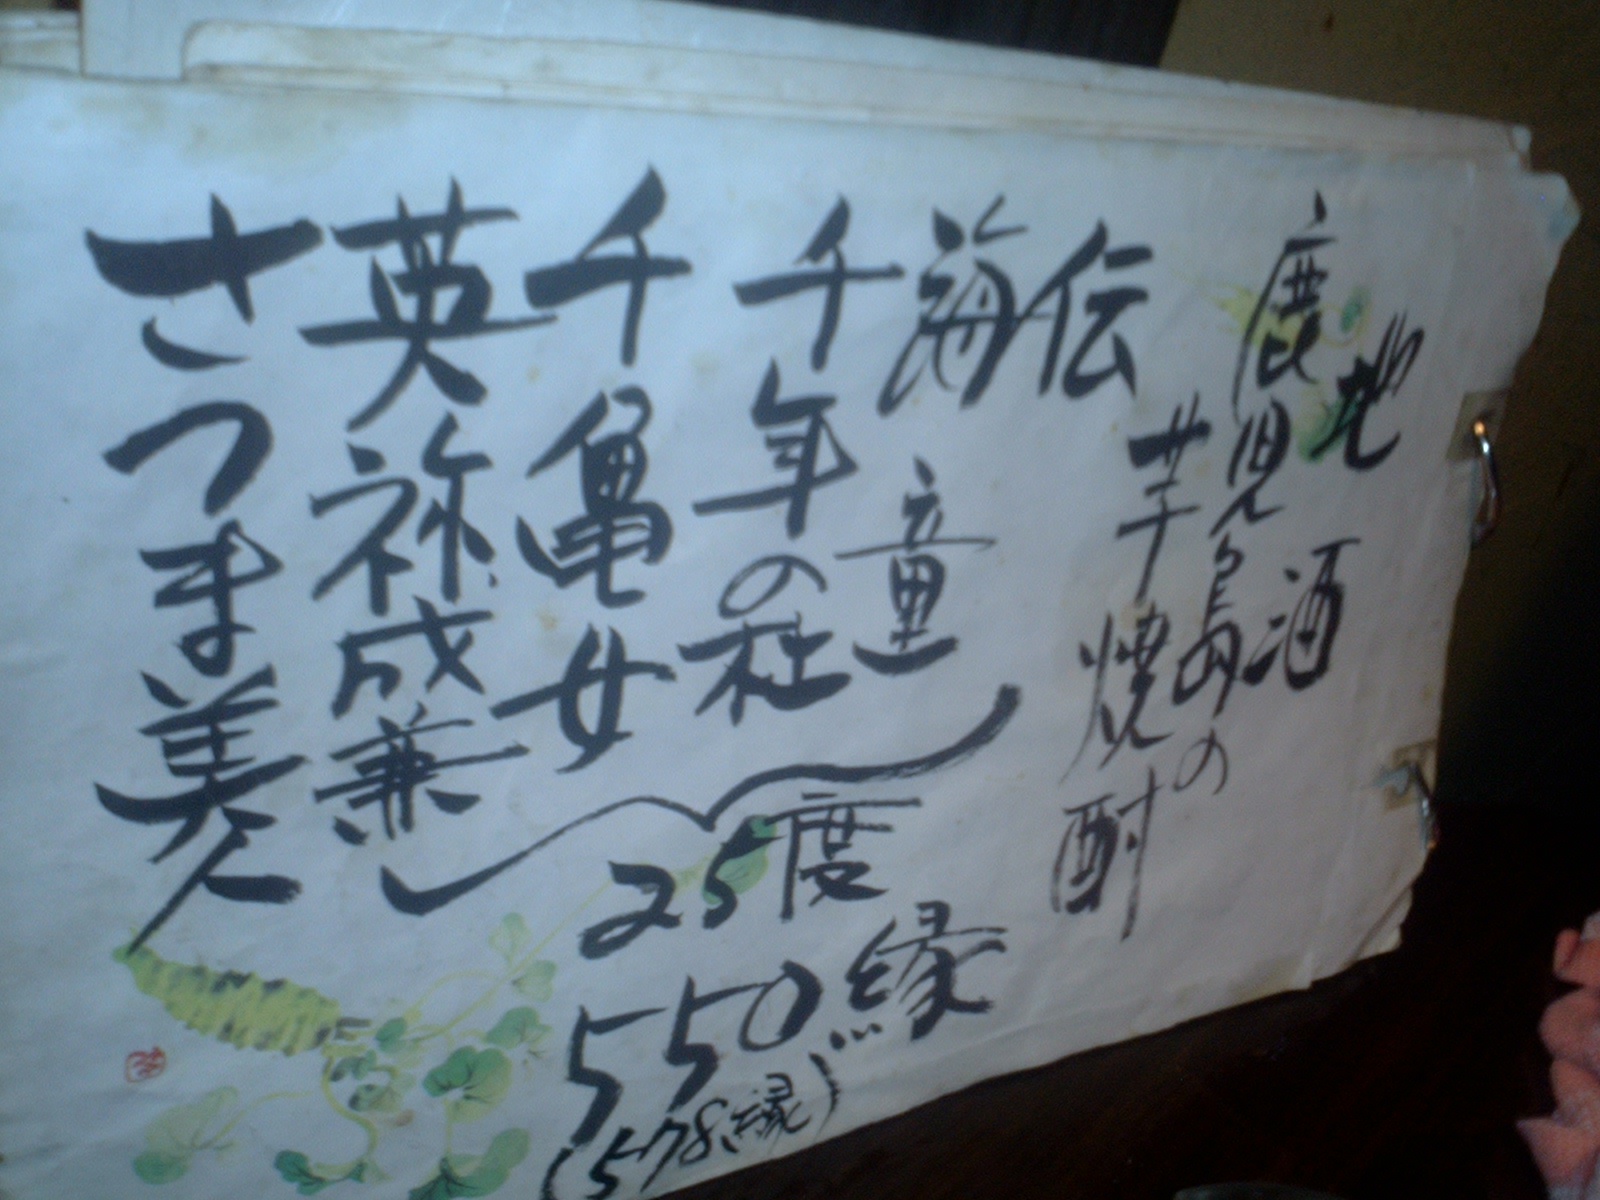 地酒
鹿児島の
芋焼酎
伝
海童
千年の杜
千亀女
英祢成兼
さつま美人
25度
550縁
(578縁)